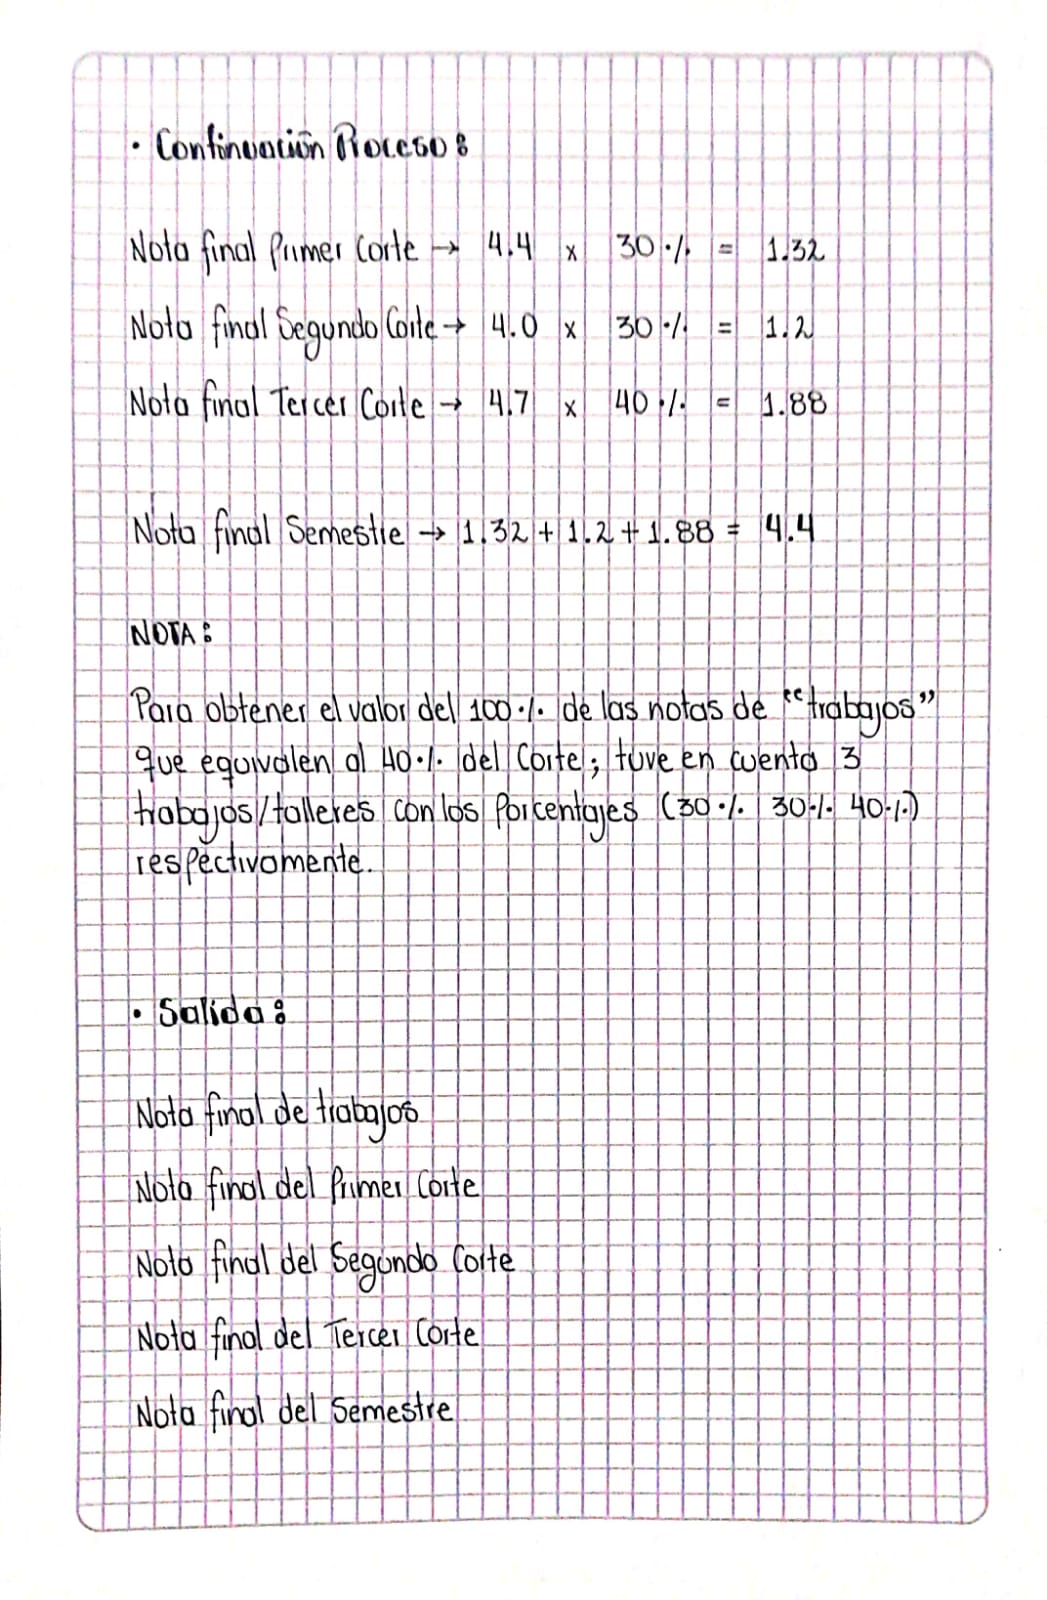 • Continuación Proceso:
Nota final Primer Corte → 4.4 x 30 % = 1.32
Nota final Segundo Corte → 4.0 x 30 % = 1.2
Nota final Tercer Corte → 4.7 x 40 % = 1.88
Nota final Semestre → 1.32 + 1.2 + 1.88 = 4.4
NOTA:
Para obtener el valor del 100 % de las notas de “trabajos”
que equivalen al 40 % del Corte; tuve en cuenta 3
trabajos/talleres con los Porcentajes (30 % 30 % 40 %)
respectivamente.
• Salida:
Nota final de trabajos
Nota final del Primer Corte
Nota final del Segundo Corte
Nota final del Tercer Corte
Nota final del Semestre